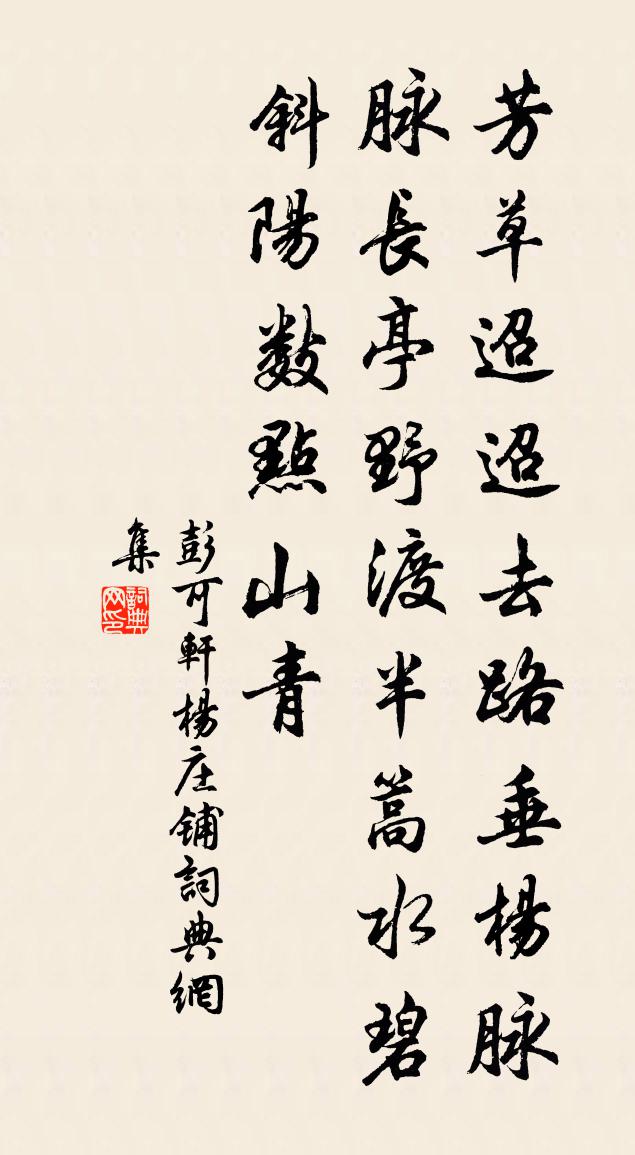 芳草迢迢去路垂楊脉
脉長亭野渡半篙水碧
斜陽數點山青
彭可軒楊庄鋪詞典網
集
詞典網印